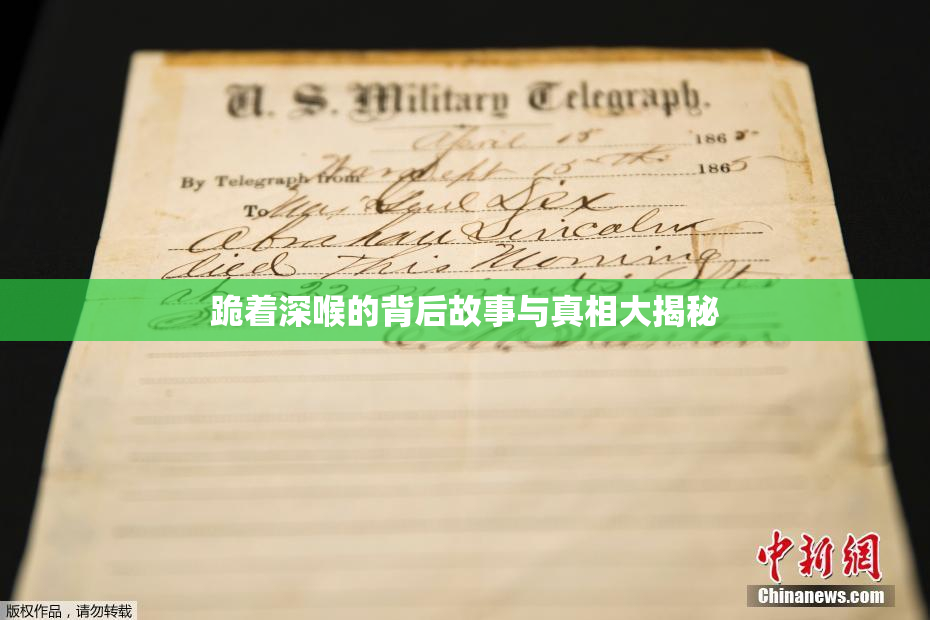 U. S. Military Telegraph.
April 15 1865
By Telegraph from War Dept 15th 1865
To Maj Genl Dix
Abraham Lincoln
died This Morning
at 22 minutes after
跪着深喉的背后故事与真相大揭秘
中新網
Chinanews.com
版权作品，请勿转载